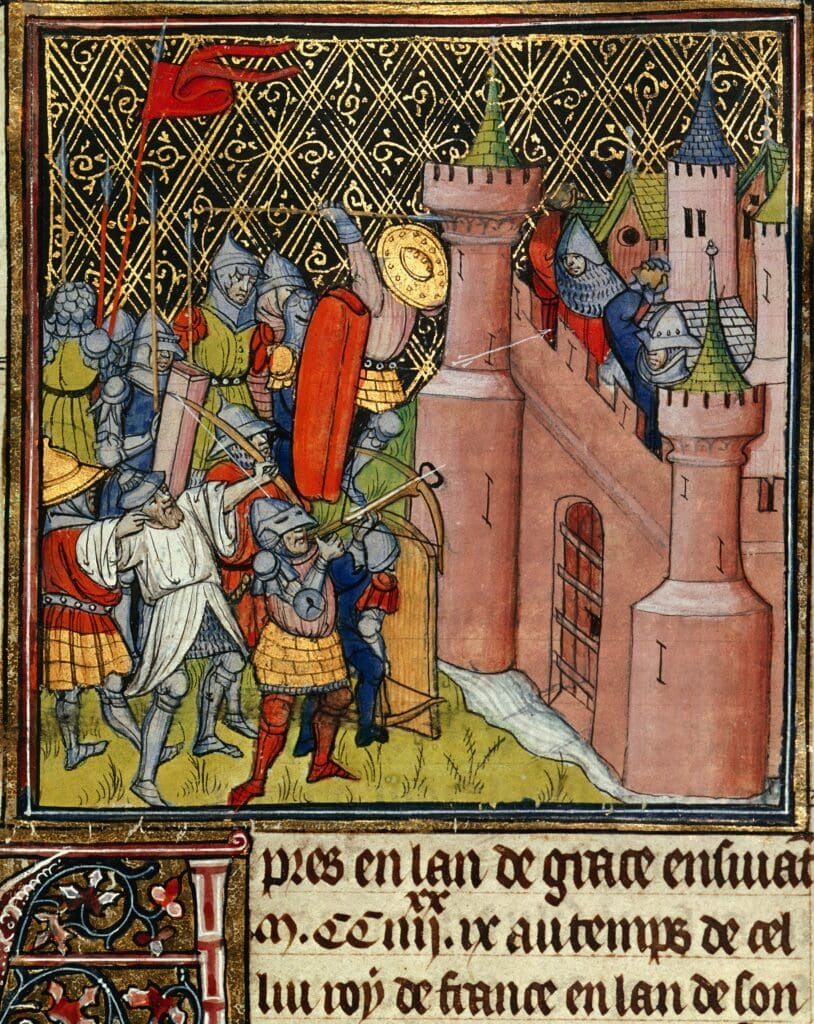 Apres en lan de grace ensuiat
xx
M. CC iiij. ix au temps de cel
lui roy de france en lan de son